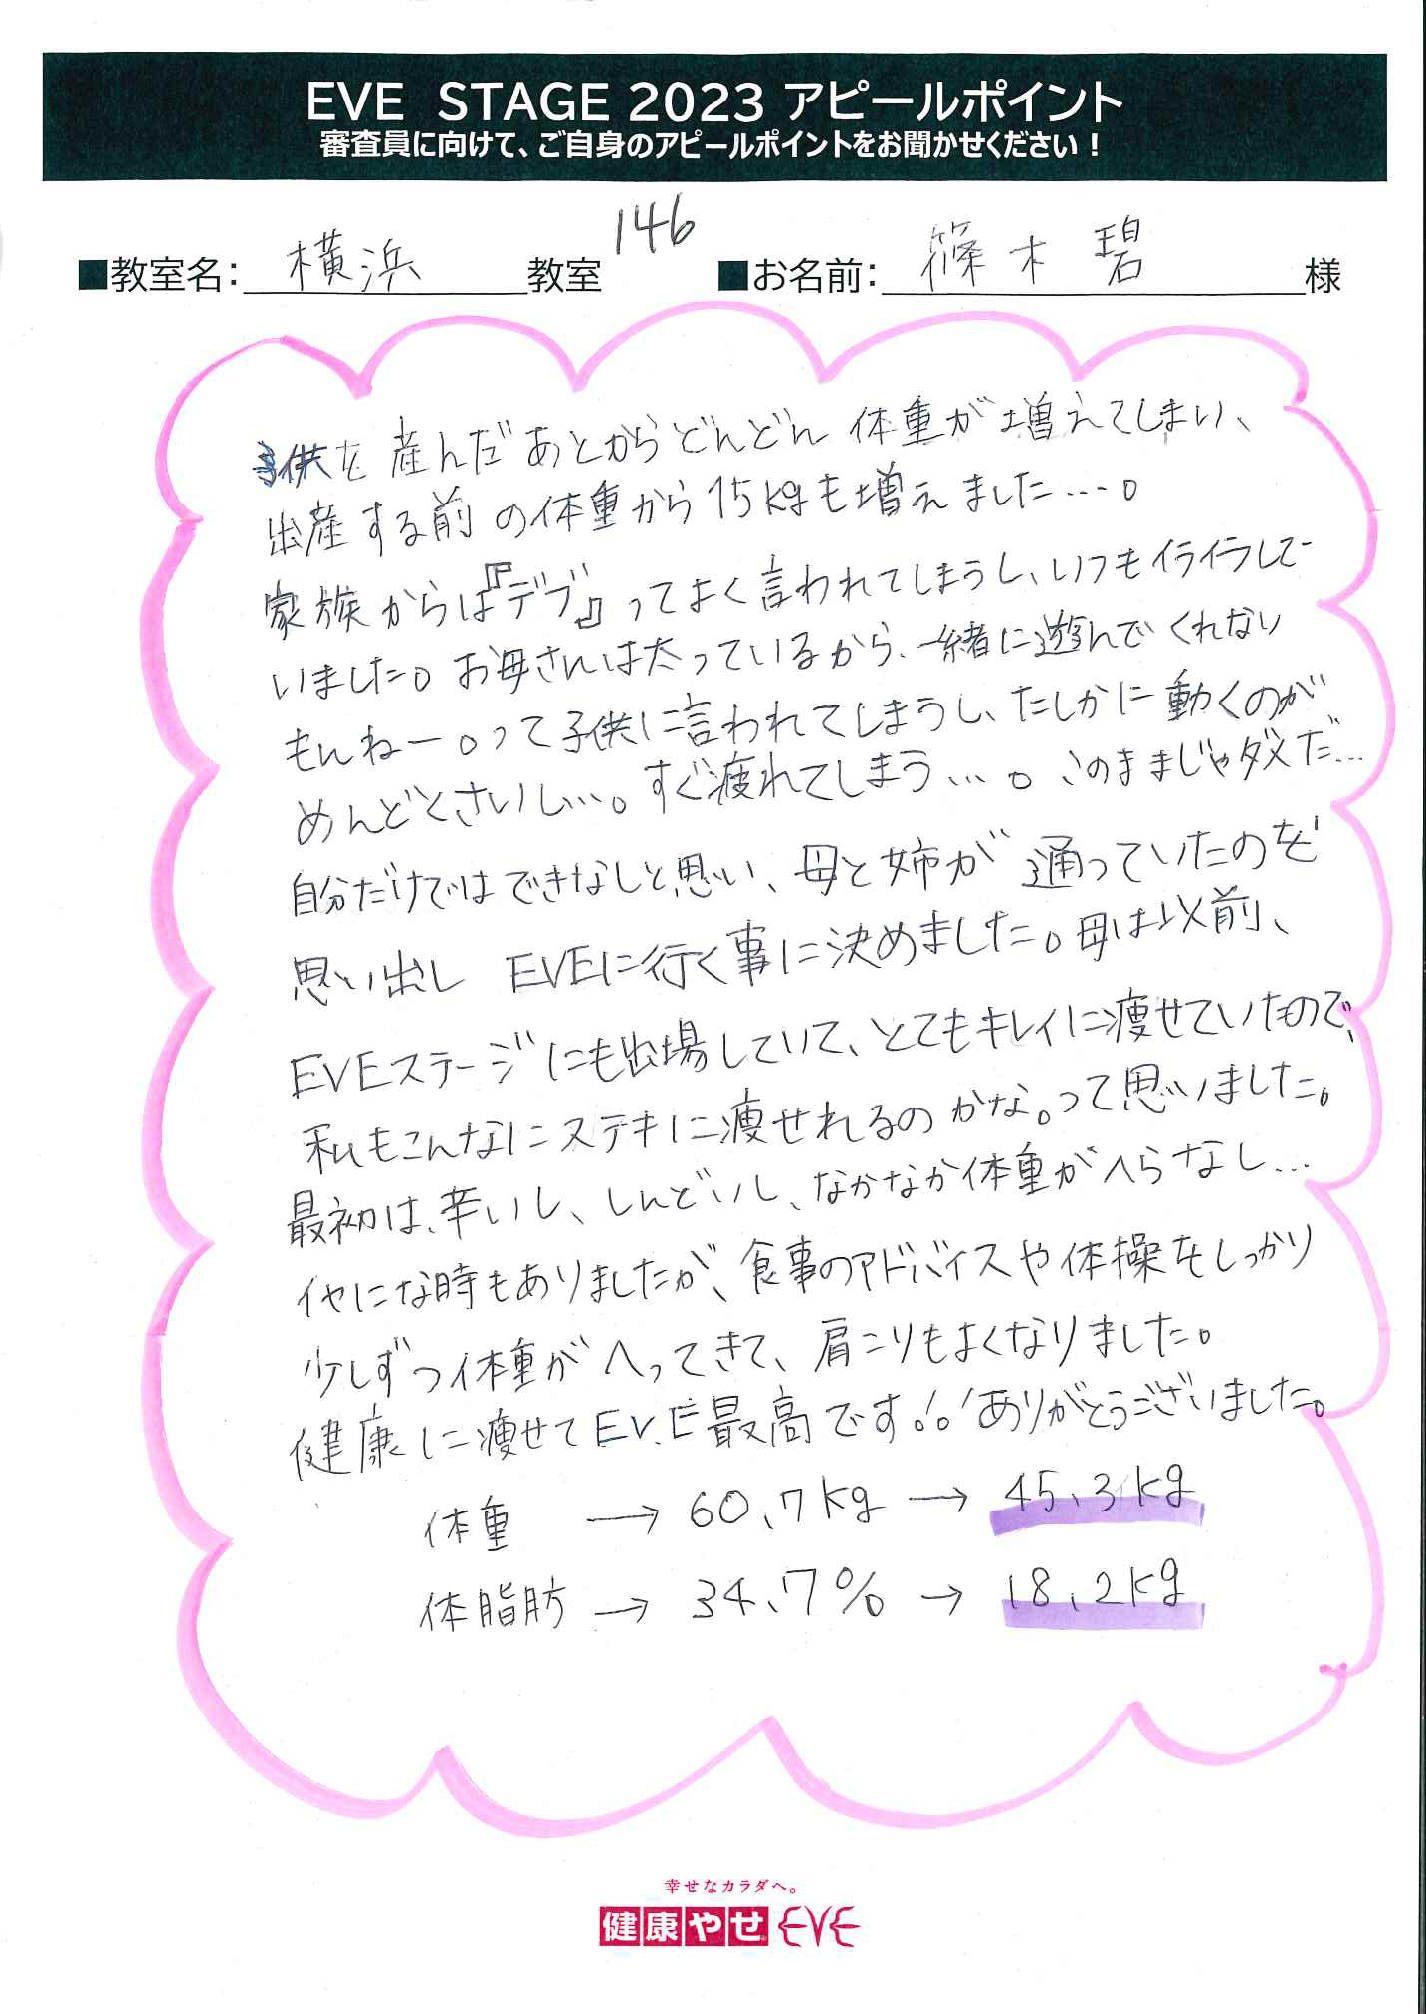 EVE STAGE 2023 アピールポイント
審査員に向けて、ご自身のアピールポイントをお聞かせください！
146
■教室名：横浜教室 ■お名前：篠木碧様
子供を産んだあとからどんどん体重が増えてしまい、
出産する前の体重から15kgも増えました…。
家族からは『デブ』ってよく言われてしまうし、いつもイライラして
いました。お母さんは太っているから、一緒に遊んでくれない
もんねー。って子供に言われてしまうし、たしかに動くのが
めんどくさいし…。すぐ疲れてしまう…。このままじゃダメだ…
自分だけではできなしと思い、母と姉が通っていたのを
思い出し EVEに行く事に決めました。母は以前、
EVEステージにも出場していて、とてもキレイに痩せていたので、
私もこんなにステキに痩せれるのかな。って思いました。
最初は、辛いし、しんどいし、なかなか体重がへらなし…
イヤにな時もありましたが、食事のアドバイスや体操をしっかり
少しずつ体重がへってきて、肩こりもよくなりました。
健康に痩せてEVE最高です！！ありがとうございました。
体重 → 60.7kg → 45.3kg
体脂肪 → 34.7% → 18.2kg
幸せなカラダへ。
健康やせ EVE